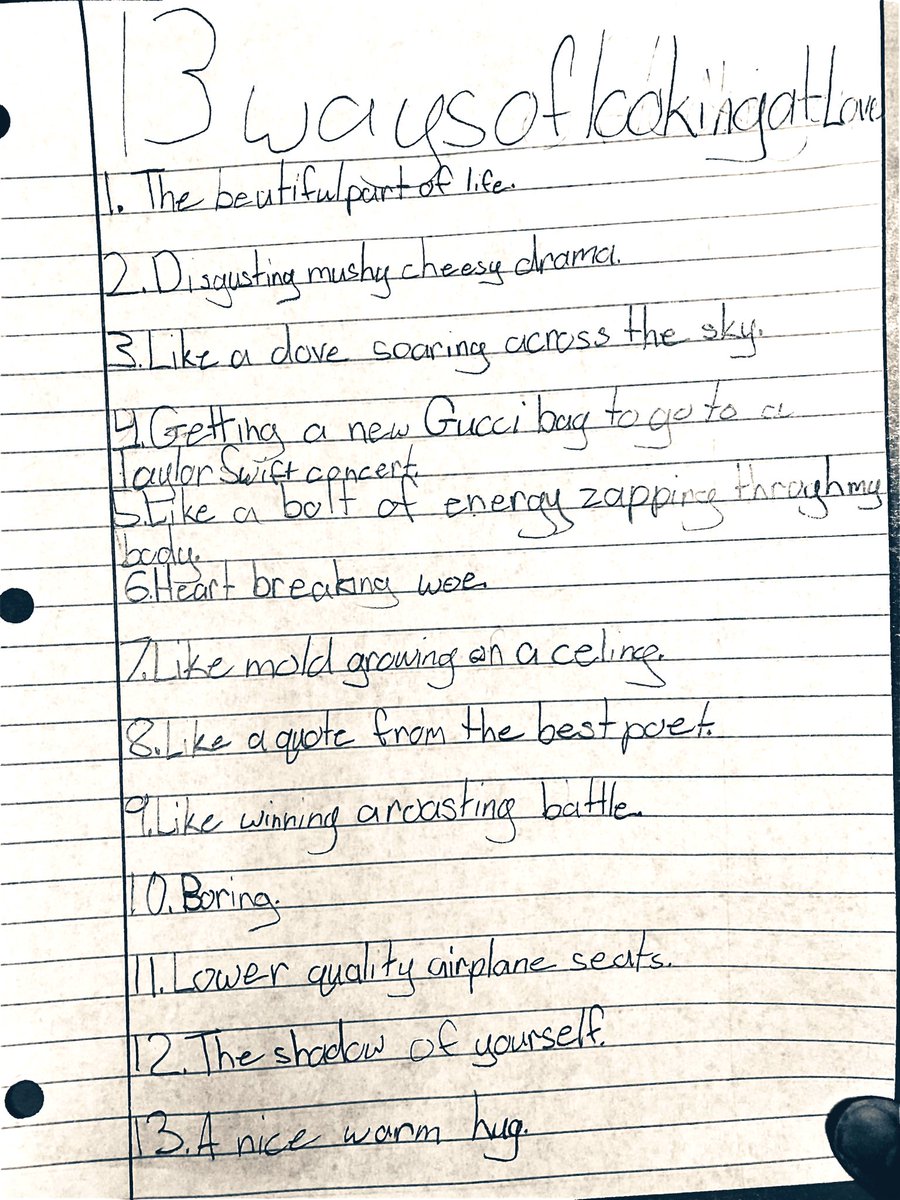 13 ways of looking at Love
1. The beutiful part of life.
2. Disgusting mushy cheesy drama.
3. Like a dove soaring across the sky.
4. Getting a new Gucci bag to go to a
Taylor Swift concert.
5. Like a bolt of energy zapping throghmy
body.
6. Heart breaking woe.
7. Like mold growing on a celing.
8. Like a quote from the best poet.
9. Like winning a roasting battle.
10. Boring.
11. Lower quality airplane seats.
12. The shadow of yourself.
13. A nice warm hug.